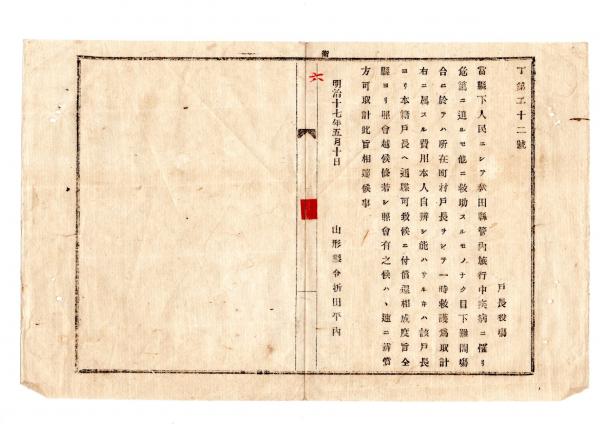 丁第五十二號
戸長役場
當縣下人民ニシテ秋田縣管內旅行中疾病ニ罹リ
危篤ニ迫ルモ他ニ救助スルモノナク目下難閣塲
合ニ於テハ所在町村戸長ヲシテ一時救護爲取計
右ニ属スル費用本人自辨シ能ハサルキハ該戸長
ヨリ本籍戸長ヘ通牒可致候ニ付償還相成度旨全
縣ヨリ照會越候條若シ照會有之候ハヽ速ニ辨償
方可取計此旨相達候事
明治十七年五月十日
山形縣令折田平內
六